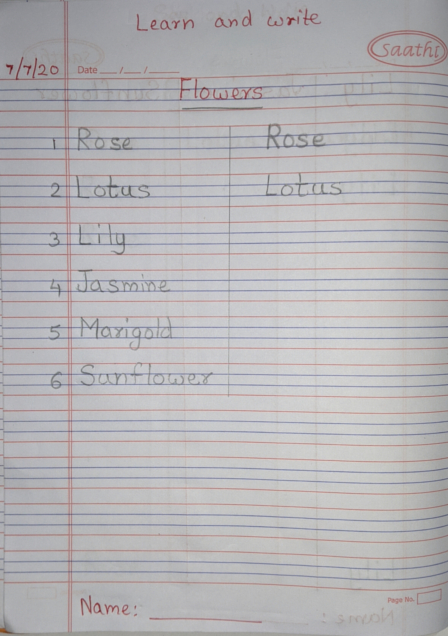 Learn and write
Saathi
7/7/20 Date __/__/__
Flowers
1 Rose Rose
2 Lotus Lotus
3 Lily
4 Jasmine
5 Marigold
6 Sunflower
Page No.
Name: ________